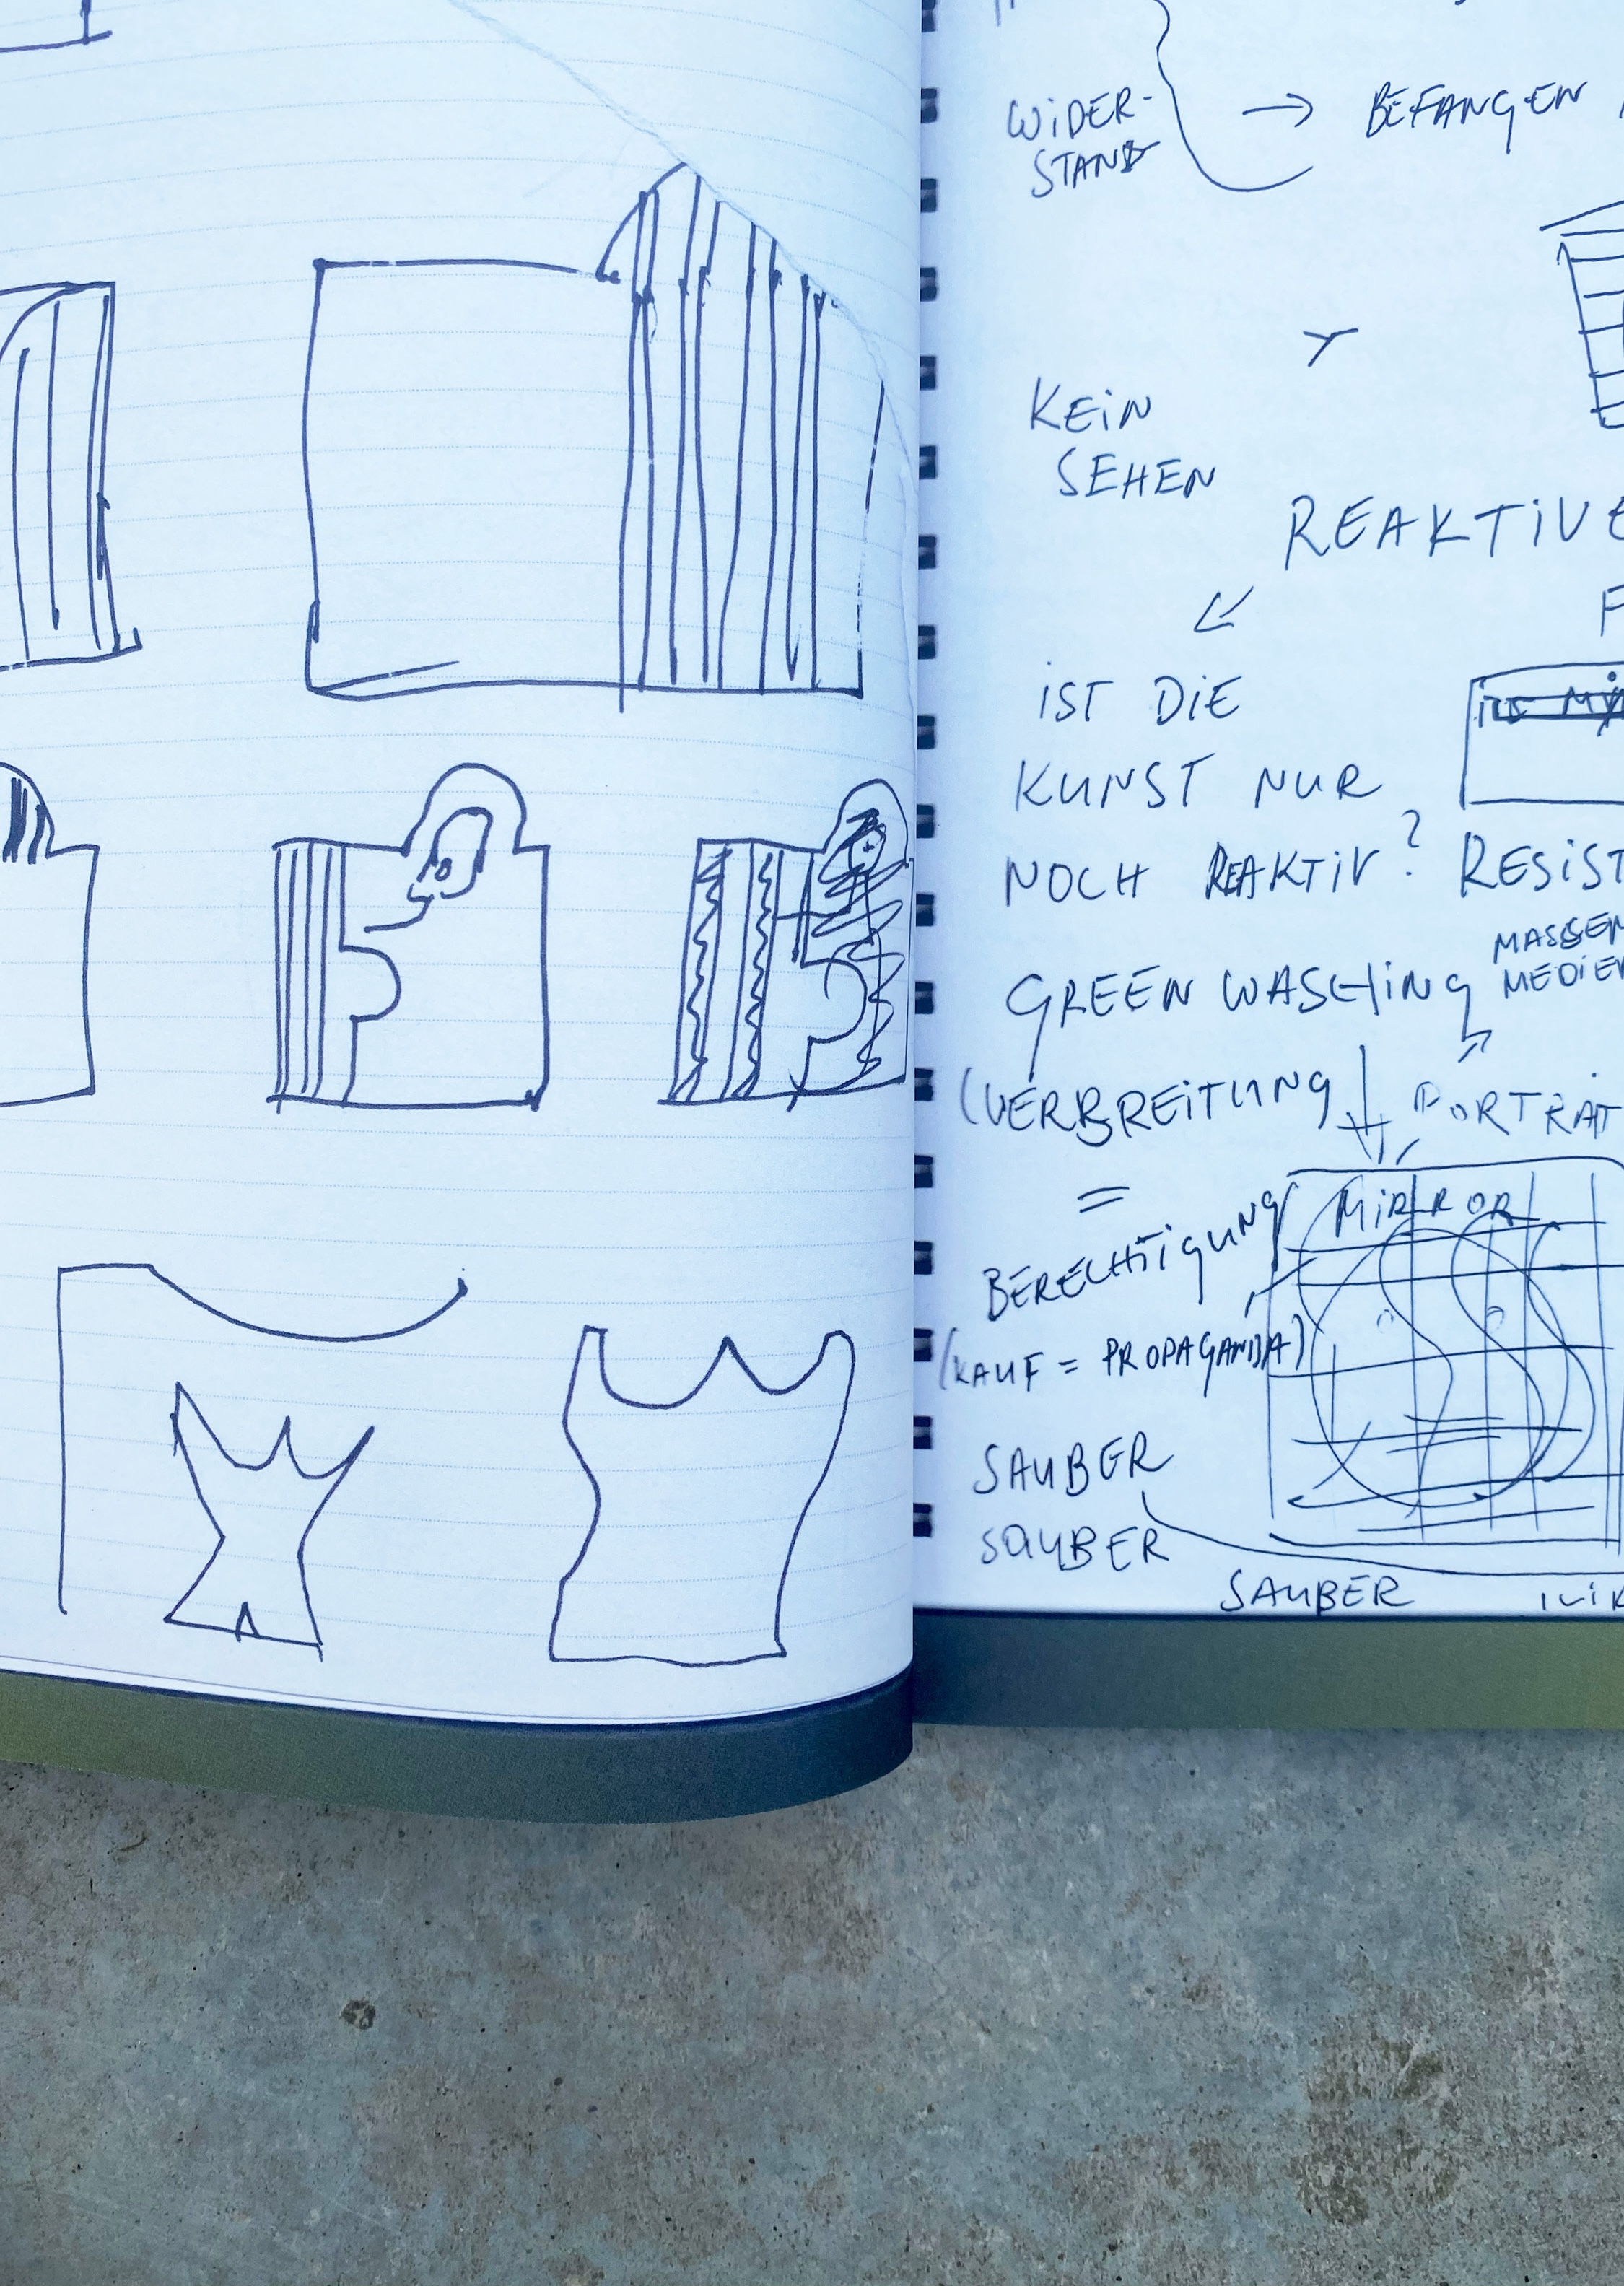 WIDER-
STAND
→ BEFANGEN
KEIN
SEHEN
REAKTIVE
F
IST DIE
KUNST NUR
NOCH REAKTIV?
RESIST
GREEN WASHING
MASSEN
MEDIEN
(VERBREITUNG
PORTRAIT
=
BERECHTIGUNG
MIRROR
(KAUF = PROPAGANDA)
SAUBER
SAUBER
SAUBER